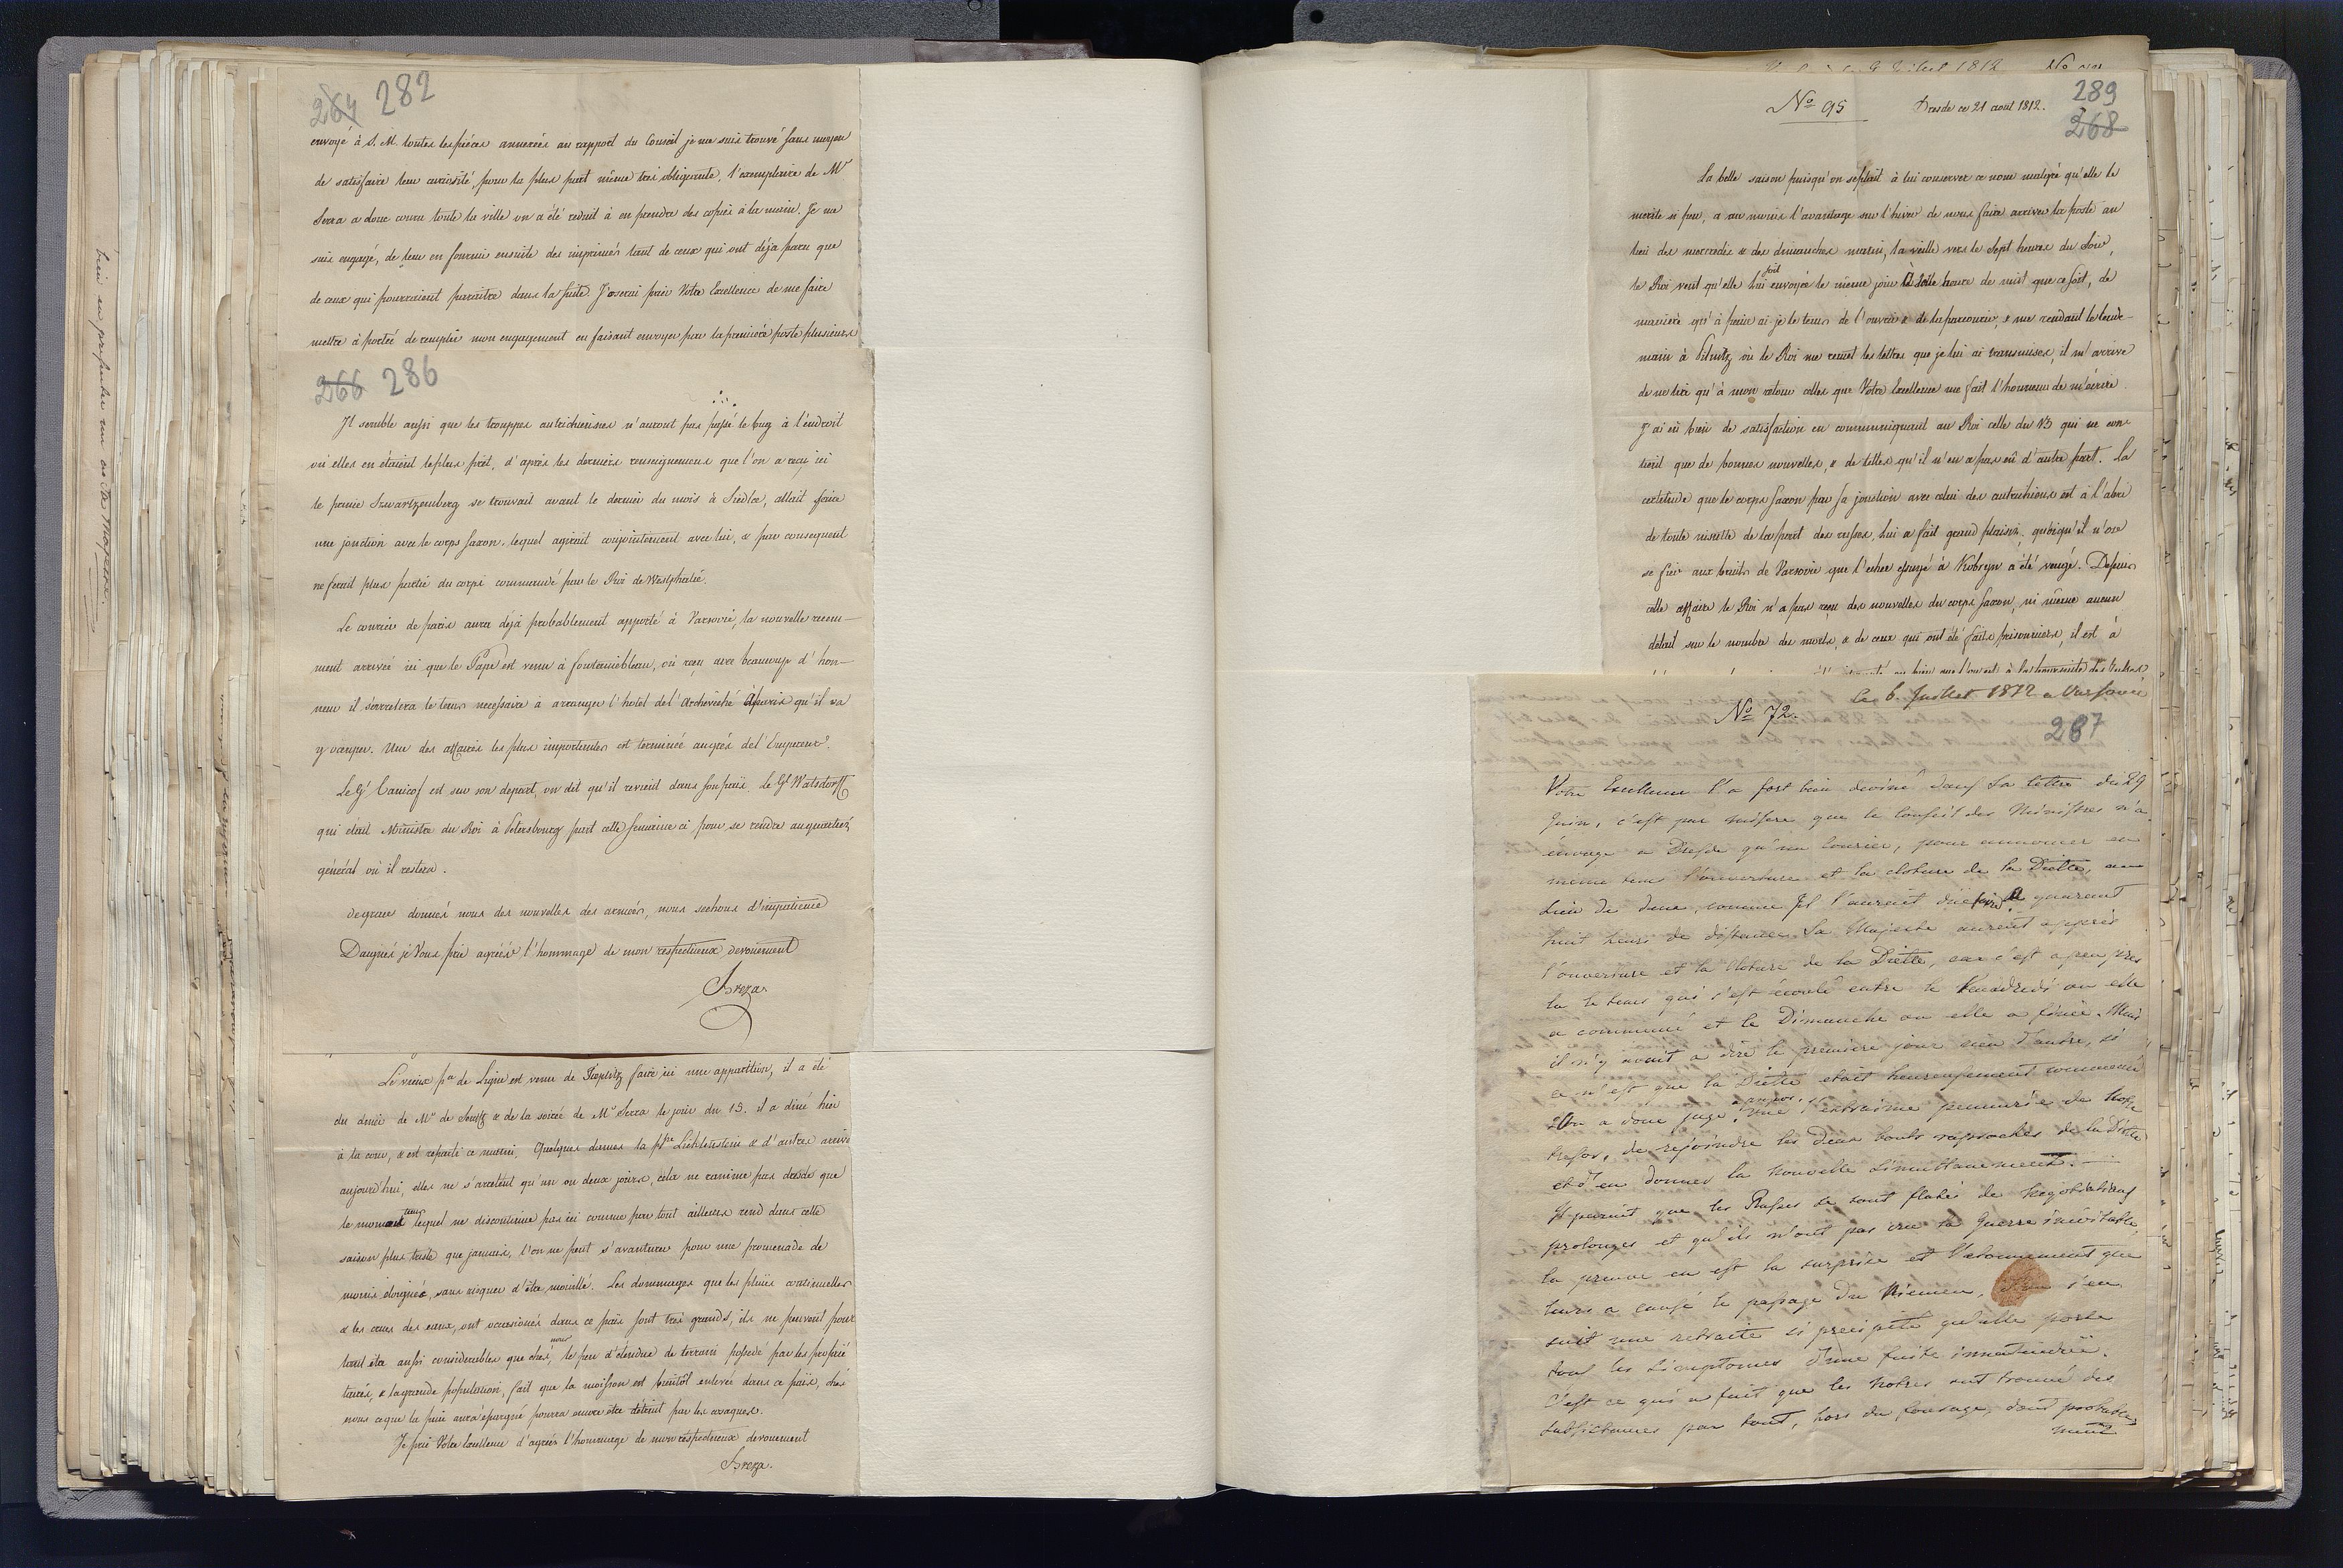 264 282
envoyé à S. M. toutes les piéces annexées au rapport du Conseil je me suis trouvé sans moyen
de satisfaire leur curiosité, pour la plus part même trés obligeante, l'exemplaire de Mr
Serra a donc couru toute la ville on a été reduit à en prendre des copies à la main. Je me
suis engagé, de leur en fournir ensuite des imprimés tant de ceux qui ont déja paru que
de ceux qui pourraient paraitre dans la suite. J'oserai prier Votre Excellence de me faire
mettre à portée de remplir mon engagement en faisant envoyer par la premiére poste plusieurs
266 286
Il semble aussi que les trouppes autrichiennes n'auront pas passé le bug à l'endroit
où elles en étaient le plus prêt, d'aprés les derniers renseignemens que l'on a reçu ici
le prince Szwartzenberg se trouvait avant le dernier du mois à Siedlce, allait faire
une jonction avec le corps saxon, lequel agirait conjointement avec lui, & par consequent
ne ferait plus partie du corps commandé par le Roi de Westphalie.
Le courier de paris aura déjà probablement apporté à Varsovie, la nouvelle recem-
ment arrivée ici que le Pape est venu à fontainebleau, où reçu avec beaucoup d'hon-
neur il s'arretera le tems necessaire à arranger l'hotel de l'Archevêché à paris qu'il va
y occuper. Une des affaires les plus importantes est terminée au grés de l'Empereur.
Le Gl Canicof est sur son depart, on dit qu'il revient dans son païs. Le Gl Watsdorff
qui était Ministre du Roi à Petersbourg part cette semaine ci pour se rendre au quartier
général où il restera.
de grace donnés nous des nouvelles des armées, nous sechons d'impatience
Daignés je Vous prie agréér l'hommage de mon respectueux devouement
Breza
Le vieux pce de Ligne est venu de Töeplitz faire ici une apparition, il a été
du diner de Mr de Senfft & de la soirée de Mr Serra le jour du 15. il a diné hier
à la cour, & est reparti ce matin. Quelques dames la psse Lichtenstein & d'autres arrivé
aujourd'hui, elles ne s'arretent qu'un ou deux jours, cela ne ranime pas dresde que
le mauvais tems lequel ne discontinue pas ici comme par tout ailleurs rend dans cette
saison plus triste que jamais, l'on ne peut s'avanturer pour une promenade de
moins éloignée, sans risquer d'être mouillé. Les dommages que les pluies continuelles
& les crues des eaux, ont occasionés dans ce païs sont trés grands, ils ne peuvent pour
tant être aussi considerables que chés nous, le peu d'etendue de terrain possedé par les proprie
taires, & la grande population, fait que la moisson est bientôt enlevée dans ce païs, chés
nous ce que la pluie aura épargné pourra encore être détruit par les cosaques.
Je prie Votre Excellence d'agréer l'hommage de mon respectueux devouement
Breza.
No 95 Dresde ce 21 aout 1812. 289
268
La belle saison puisqu'on se plait à lui conserver ce nom malgré qu'elle le
merite si peu, a au moins l'avantage sur l'hiver de nous faire arriver la poste au
lieu des mercredis & des dimanches matin, la veille vers le sept heures du soir,
le Roi veut qu'elle lui soit envoyée le même jour à telle heure de nuit que ce soit, de
maniere qu'à peine ai-je le tems de l'ouvrir & de la parcourir, & me rendant le lende-
main à Pilnitz où le Roi me remet les lettres que je lui ai transmises, il m'arrive
de ne lire qu'à mon retour celles que Votre Excellence me fait l'honneur de m'écrire.
J'ai eû bien de satisfaction en communiquant au Roi celle du 13 qui ne con-
tient que de bonnes nouvelles, & de telles qu'il n'en a pas eû d'autre part. La
certitude que le corps saxon par sa jonction avec celui des autrichiens est à l'abri
de toute insulte de la part des russes, lui a fait grand plaisir, quoiqu'il n'ose
se fier aux bruits de Varsovie que l'echec essuyé à Kobryn a été vengé. Depuis
cette affaire le Roi n'a pas reçu des nouvelles du corps saxon, ni même aucun
détail sur le nombre des morts, & de ceux qui ont été faits prisonniers, il est à
No 72. Le 6. Juillet 1812 a Varsovie
287
Votre Excellence l'a fort bien deviné dans Sa lettre du 29
Juin, c'est par misere que le Conseil des Ministres n'a
envoyé a Dresde qu'un Courier, pour annoncer en
meme tems l'ouverture et la cloture de la Diette, au
Lieu de deux, comme Il l'auroit dû faire. A quarant
huit heures de distance Sa Majesté auroit appris
l'ouverture et la Cloture de la Diette, car c'est a peu pres
la le tems qui s'est écoulé entre le Vendredi ou elle
a commencé et le Dimanche ou elle a finie. Mais
il n'y avoit a dire le premiere jour rien d'autre, si
ce n'est que la Diette etoit heureusement commencé
On a donc jugé a propos, vue l'extraime penurie de notre
tresor, de rejoindre les deux bouts raprochés de la Diette
et d'en donner la nouvelle simultanement.—
Il paroit que les Russes se sont flatés de Negotiations
prolonges et qu'ils n'ont pas crue la Guerre inévitable,
la preuve en est la surprise et l'etonnement que
leur a causé le passage du Niemen, Il en s'en
suit une retraite si precipité qu'elle porte
tout les simptomes d'une fuite innatendüe.
C'est ce qui a fait que les notres ont trouvé des
subsistances par tout, hors du fourage, dont probable
ment